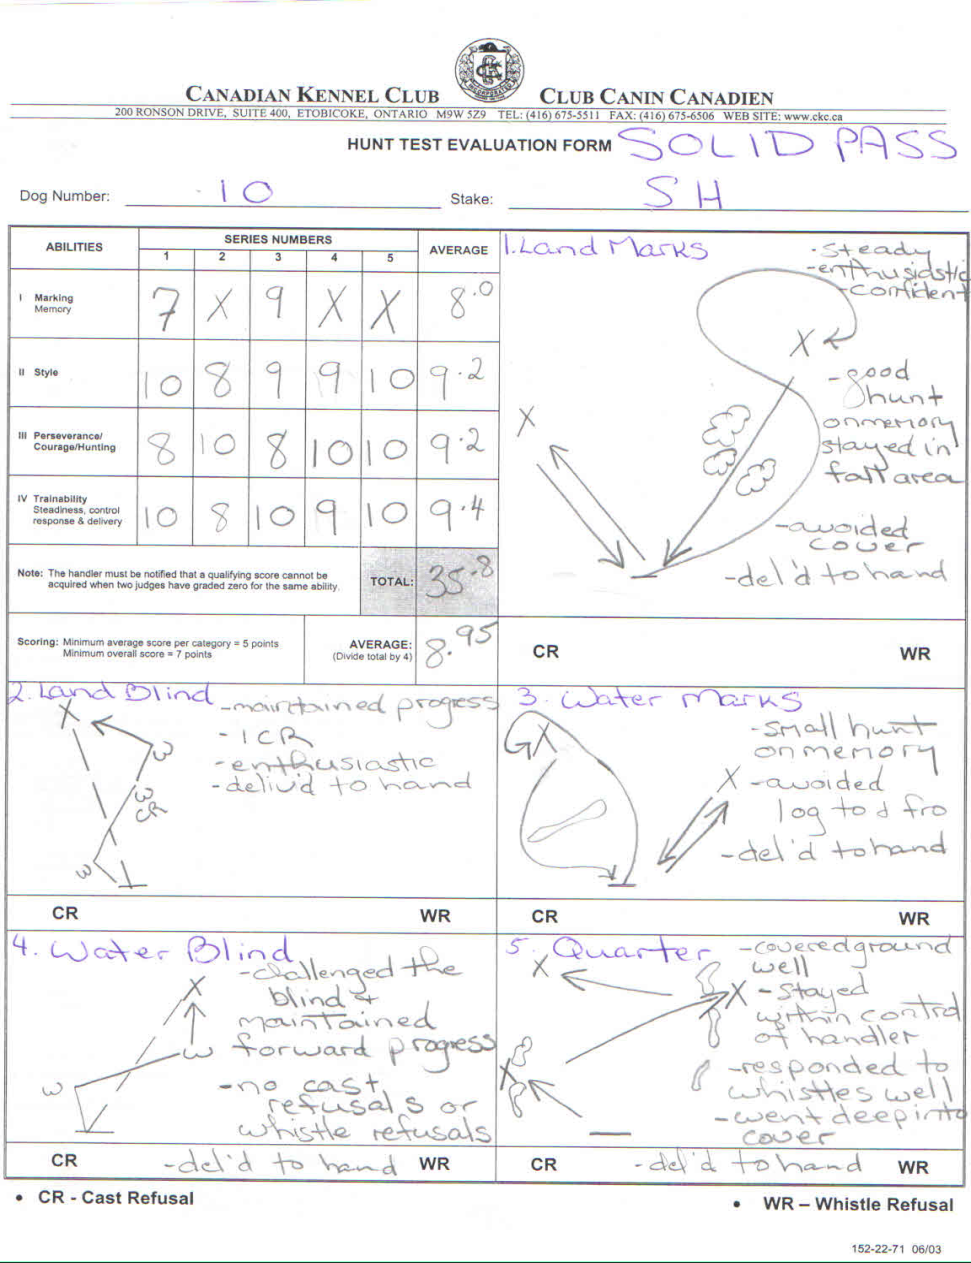 CANADIAN KENNEL CLUB CLUB CANIN CANADIEN
200 RONSON DRIVE, SUITE 400, ETOBICOKE, ONTARIO M9W 5Z9 TEL: (416) 675-5511 FAX: (416) 675-6506 WEB SITE: www.ckc.ca
HUNT TEST EVALUATION FORM SOLID PASS
Dog Number: 10 Stake: SH
ABILITIES SERIES NUMBERS AVERAGE
1 2 3 4 5
I Marking
Memory
7 X 9 X X 8.0
II Style 10 8 9 9 10 9.2
III Perseverance/
Courage/Hunting
8 10 8 10 10 9.2
IV Trainability
Steadiness, control
response & delivery
10 8 10 9 10 9.4
Note: The handler must be notified that a qualifying score cannot be
acquired when two judges have graded zero for the same ability.
TOTAL: 35.8
Scoring: Minimum average score per category = 5 points
Minimum overall score = 7 points
AVERAGE:
(Divide total by 4)
8.95
1. Land Marks
- Steady
- enthusidstic
- confident
X
X
- good
hunt
on memory
stayed in
fall area
- avoided
cover
- del'd to hand
CR WR
2. Land Blind
- maintained progress
- 1 CR
- enthusiastic
- deliv'd to hand
X
W
W
CR
W
CR WR
3. Water Marks
GX
- small hunt
on memory
X - avoided
log to & fro
- del'd to hand
CR WR
4. Water Blind
- challenged the
blind +
maintained
forward progress
- no cast
refusals or
whistle refusals
X
W
W
CR - del'd to hand WR
5. Quarter
- covered ground
well
X
X - stayed
within control
of handler
X
- responded to
whistles well
- went deep into
cover
CR - del'd to hand WR
• CR - Cast Refusal
• WR – Whistle Refusal
152-22-71 06/03